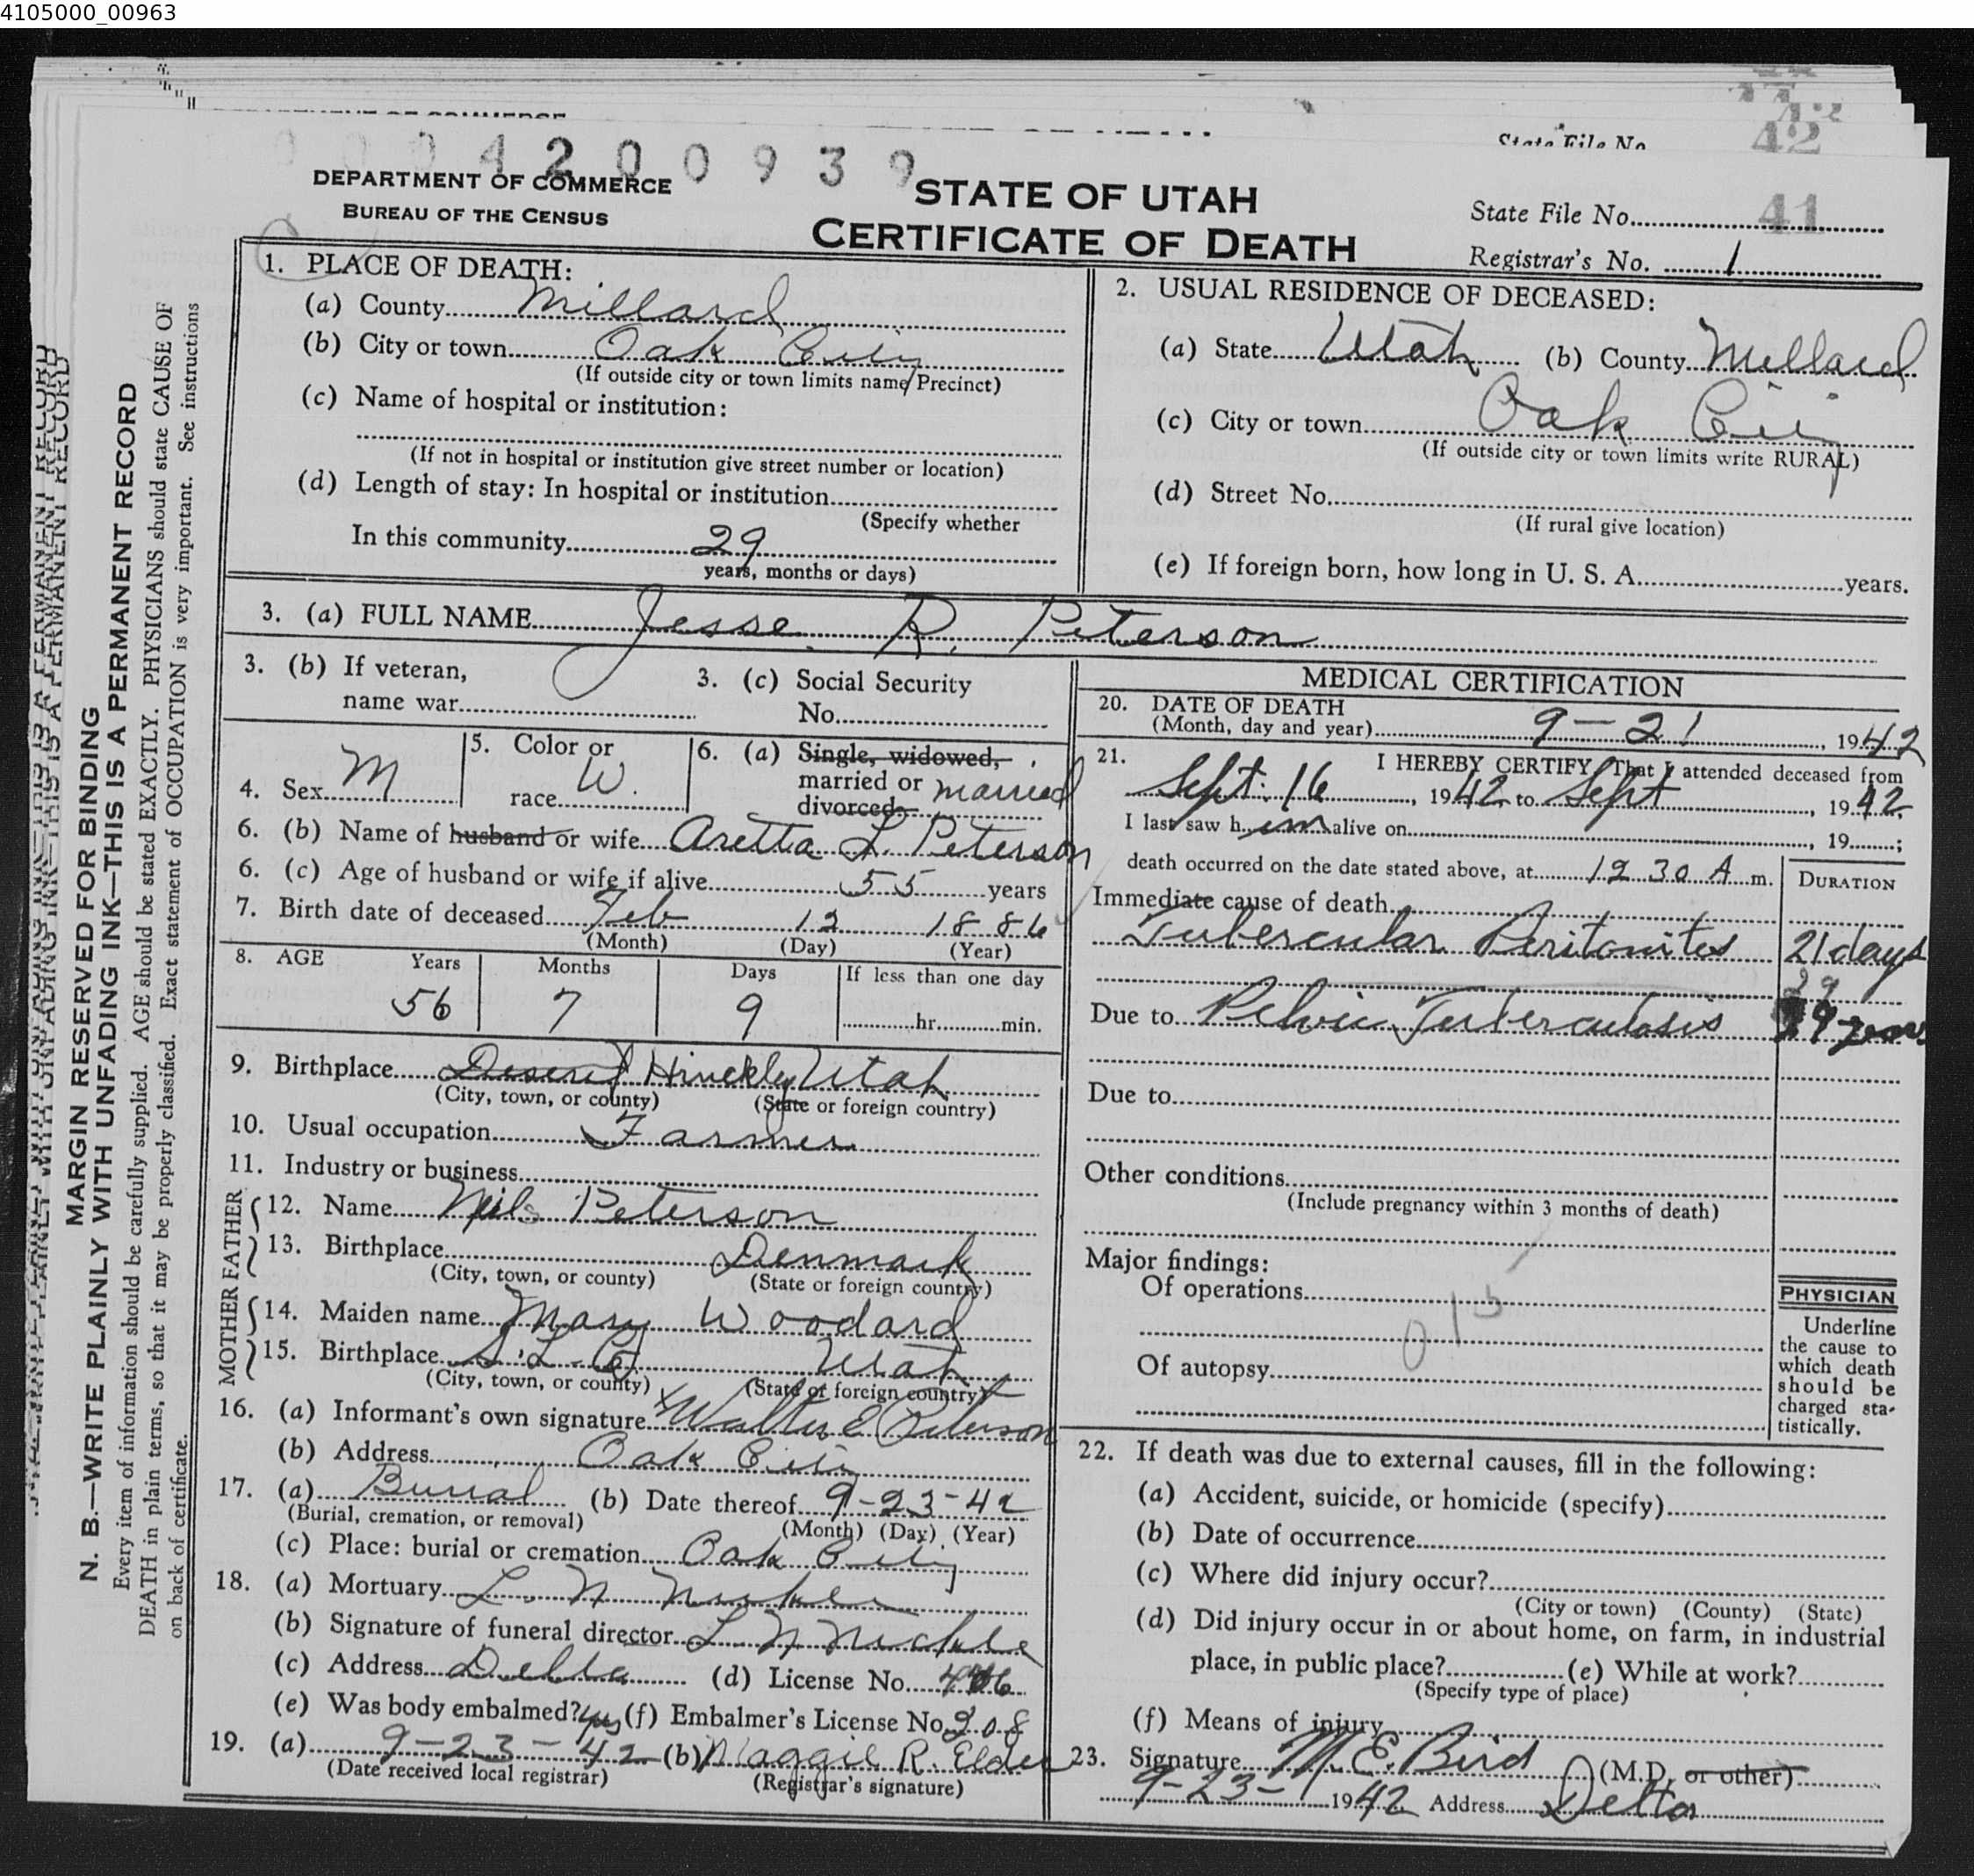 4105000_00963
State File No.
42
0 0 0 4 2 0 0 9 3 9
DEPARTMENT OF COMMERCE
BUREAU OF THE CENSUS
STATE OF UTAH
CERTIFICATE OF DEATH
State File No. 41
Registrar's No. 1
MARGIN RESERVED FOR BINDING
N. B.—WRITE PLAINLY WITH UNFADING INK—THIS IS A PERMANENT RECORD
Every item of information should be carefully supplied. AGE should be stated EXACTLY. PHYSICIANS should state CAUSE OF
DEATH in plain terms, so that it may be properly classified. Exact statement of OCCUPATION is very important. See instructions
on back of certificate.
1. PLACE OF DEATH:
(a) County Millard
(b) City or town Oak City
(If outside city or town limits name Precinct)
(c) Name of hospital or institution:
(If not in hospital or institution give street number or location)
(d) Length of stay: In hospital or institution
(Specify whether
In this community 29
years, months or days)
2. USUAL RESIDENCE OF DECEASED:
(a) State Utah (b) County Millard
(c) City or town Oak City
(If outside city or town limits write RURAL)
(d) Street No.
(If rural give location)
(e) If foreign born, how long in U. S. A. years.
3. (a) FULL NAME Jesse R. Peterson
3. (b) If veteran,
name war
3. (c) Social Security
No.
4. Sex M
5. Color or
race W.
6. (a) Single, widowed,
married or married
divorced
6. (b) Name of husband or wife Aretta L. Peterson
6. (c) Age of husband or wife if alive 55 years
7. Birth date of deceased Feb 12 1886
(Month) (Day) (Year)
8. AGE Years Months Days If less than one day
56 7 9 hr. min.
9. Birthplace Deseret Hinckley Utah
(City, town, or county) (State or foreign country)
10. Usual occupation Farmer
11. Industry or business
FATHER
12. Name Neils Peterson
13. Birthplace Denmark
(City, town, or county) (State or foreign country)
MOTHER
14. Maiden name Mary Woodard
15. Birthplace S. L. C. Utah
(City, town, or county) (State or foreign country)
16. (a) Informant's own signature x Walter E Peterson
(b) Address Oak City
17. (a) Burial (b) Date thereof 9-23-42
(Burial, cremation, or removal) (Month) (Day) (Year)
(c) Place: burial or cremation Oak City
18. (a) Mortuary L. N
(b) Signature of funeral director L N
(c) Address Delta (d) License No.
(e) Was body embalmed? yes (f) Embalmer's License No. 208
19. (a) 9-23-42 (b) Maggie R. Elder
(Date received local registrar) (Registrar's signature)
MEDICAL CERTIFICATION
20. DATE OF DEATH
(Month, day and year) 9-21, 1942
21. I HEREBY CERTIFY, That I attended deceased from
Sept. 16, 1942 to Sept, 1942
I last saw him alive on , 19 ;
death occurred on the date stated above, at 12 30 A m.
DURATION
Immediate cause of death
Tubercular Peritonites 21 days
29
Due to Pelvic Tuberculosis 29 years
Due to
Other conditions
(Include pregnancy within 3 months of death)
Major findings:
Of operations
Of autopsy
PHYSICIAN
Underline
the cause to
which death
should be
charged sta-
tistically.
22. If death was due to external causes, fill in the following:
(a) Accident, suicide, or homicide (specify)
(b) Date of occurrence
(c) Where did injury occur?
(City or town) (County) (State)
(d) Did injury occur in or about home, on farm, in industrial
place, in public place? (e) While at work?
(Specify type of place)
(f) Means of injury
23. Signature M. E. Bird (M.D. or other)
9-23- 1942 Address Delta